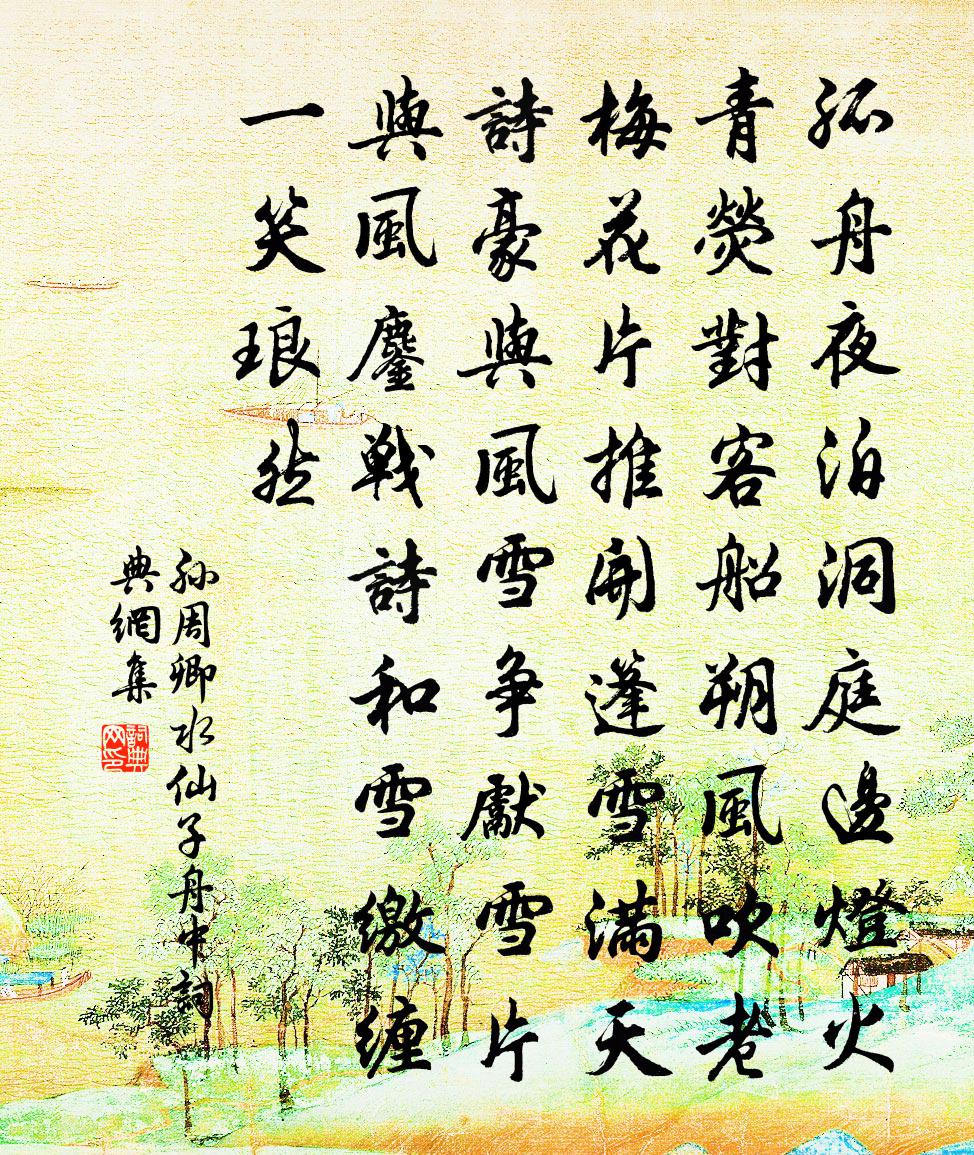 孤舟夜泊洞庭邊燈火
青熒對客船朔風吹老
梅花片推開篷雪滿天
詩豪與風雪爭獻雪片
與風鏖戰詩和雪繳纏
一笑琅然
孫周卿水仙子舟中詞
典網集
詞典網印